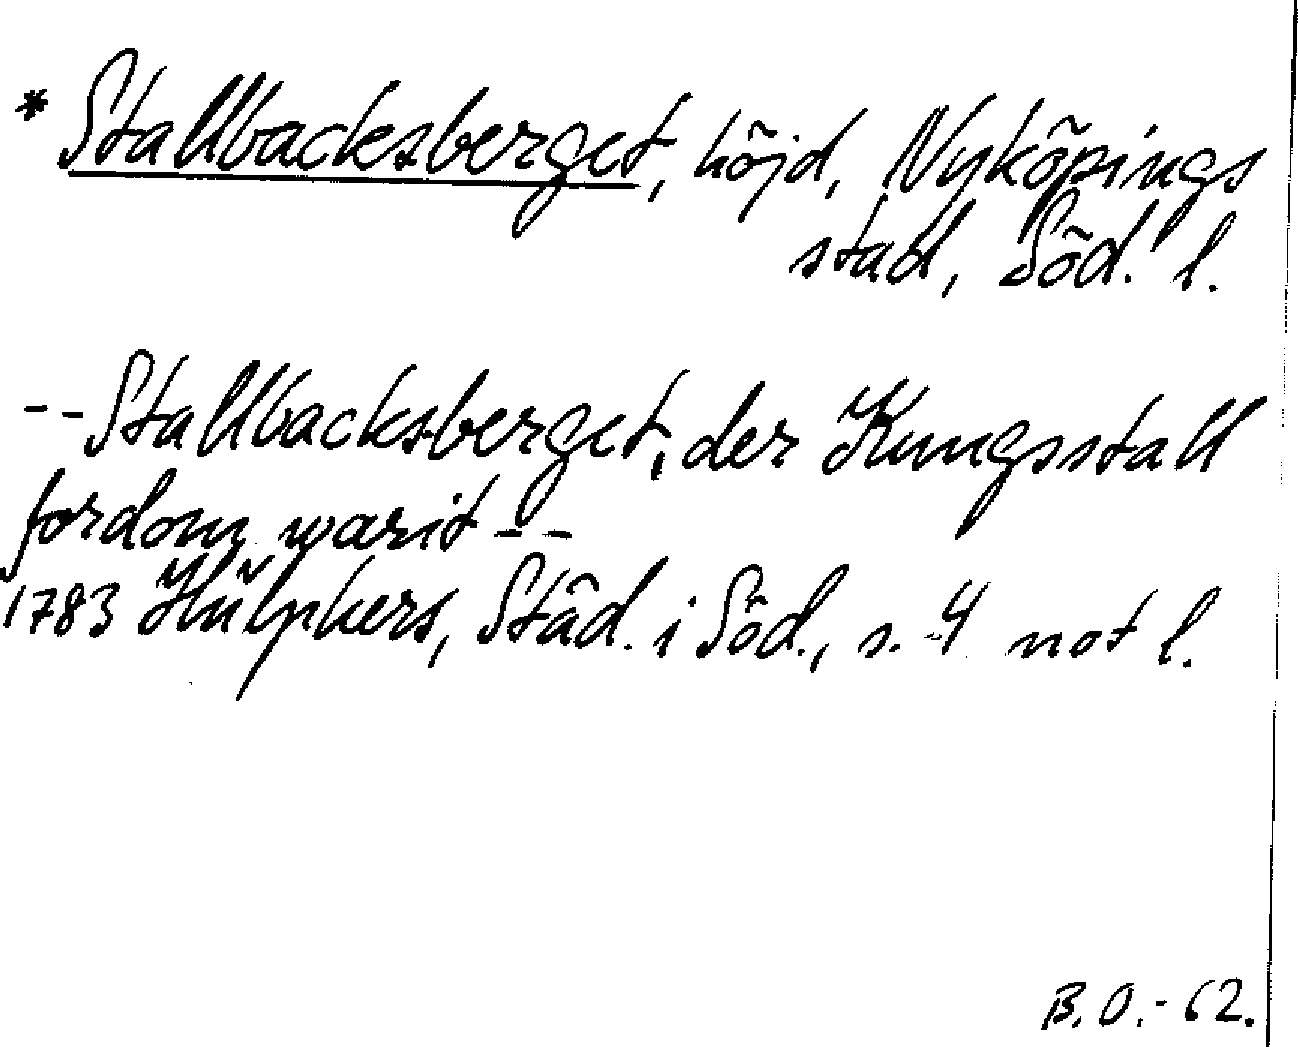 * Stallbacksberget, höjd, Nyköpings
stad, Söd. l.
-- Stallbacksberget, der Kungsstall
fordom warit --
1783 Hülphers, Städ. i Söd., s. 4 not l.
B.O.-62.